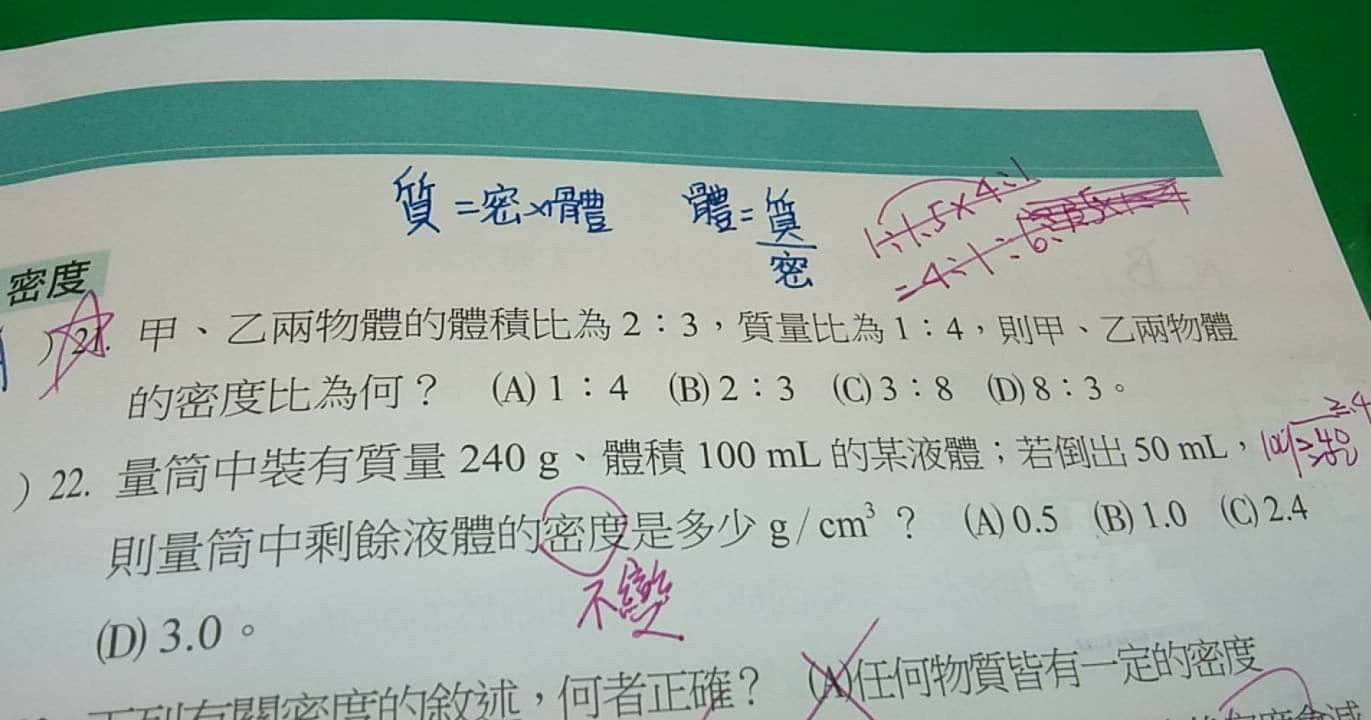 質=密×體 體=質/密
密度
)21. 甲、乙兩物體的體積比為2:3,質量比為1:4,則甲、乙兩物體
的密度比為何? (A)1:4 (B)2:3 (C)3:8 (D)8:3。
)22. 量筒中裝有質量 240 g、體積 100 mL 的某液體;若倒出 50 mL,
則量筒中剩餘液體的密度是多少 g/cm³? (A)0.5 (B)1.0 (C)2.4
不變
(D)3.0。
下列有關密度的敘述,何者正確? (A)任何物質皆有一定的密度